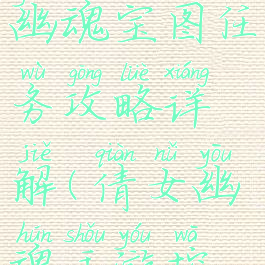 幽魂宝图任
wù gōng lüè xiáng
务攻略详
jiě qiàn nǚ yōu
解(倩女幽
hún shǒu yóu wā
魂手游挖